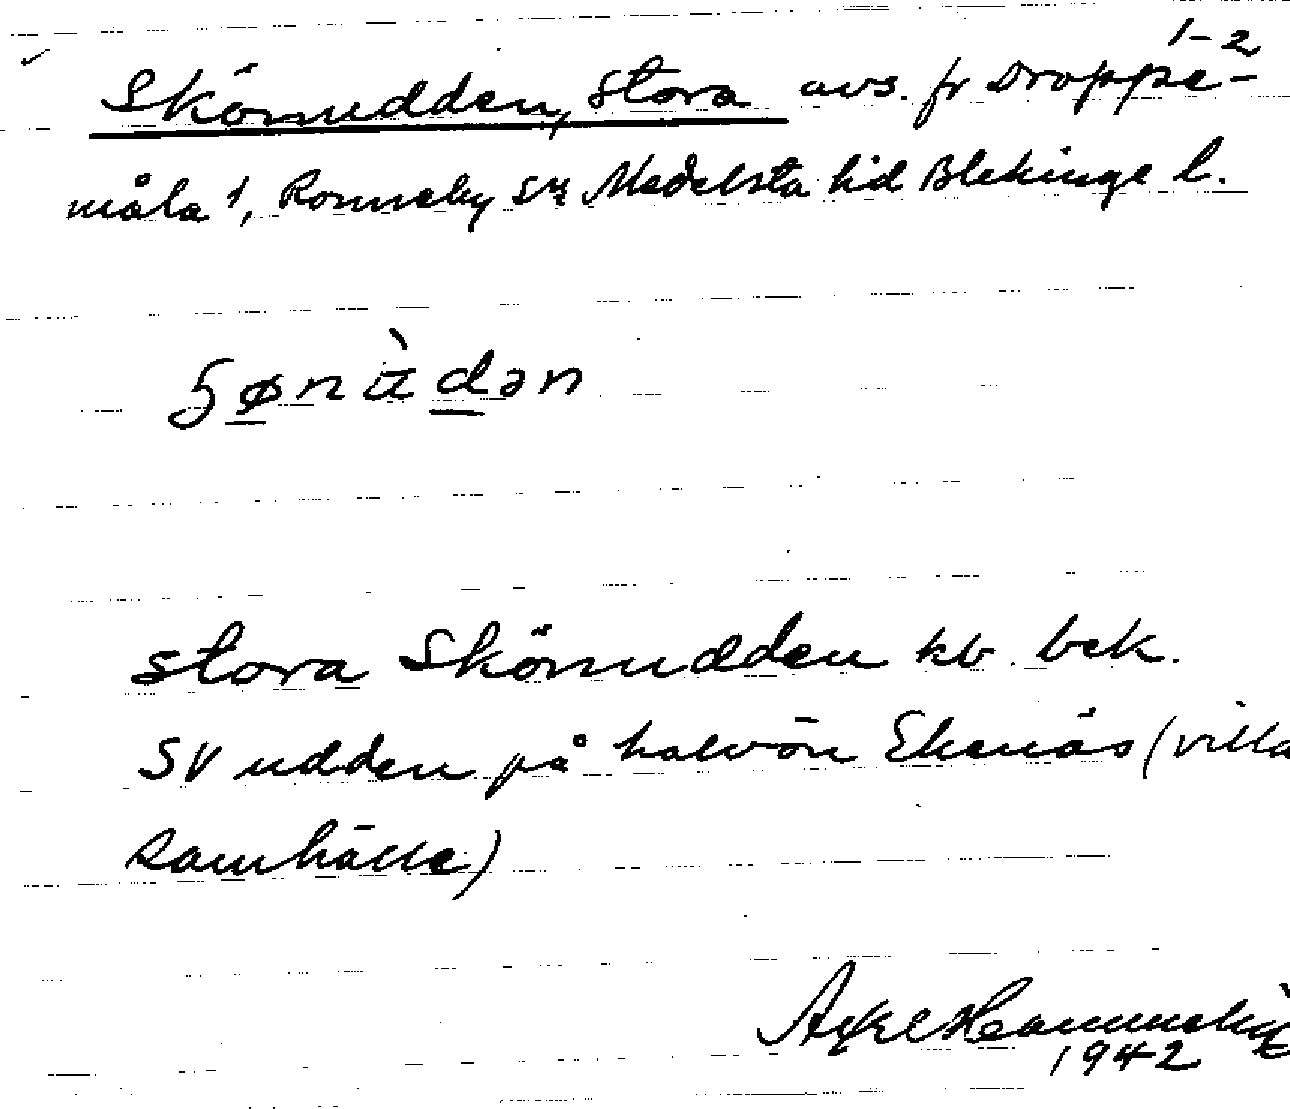 1-2
Skönudden, Stora avs. fr Droppe-
måla 1, Ronneby sn Medelsta hd Blekinge l.
ʂønù̈dən
stora Skönudden kb. bek.
SV udden på halvön Ekenäs (villa
samhälle)
Axel
1942